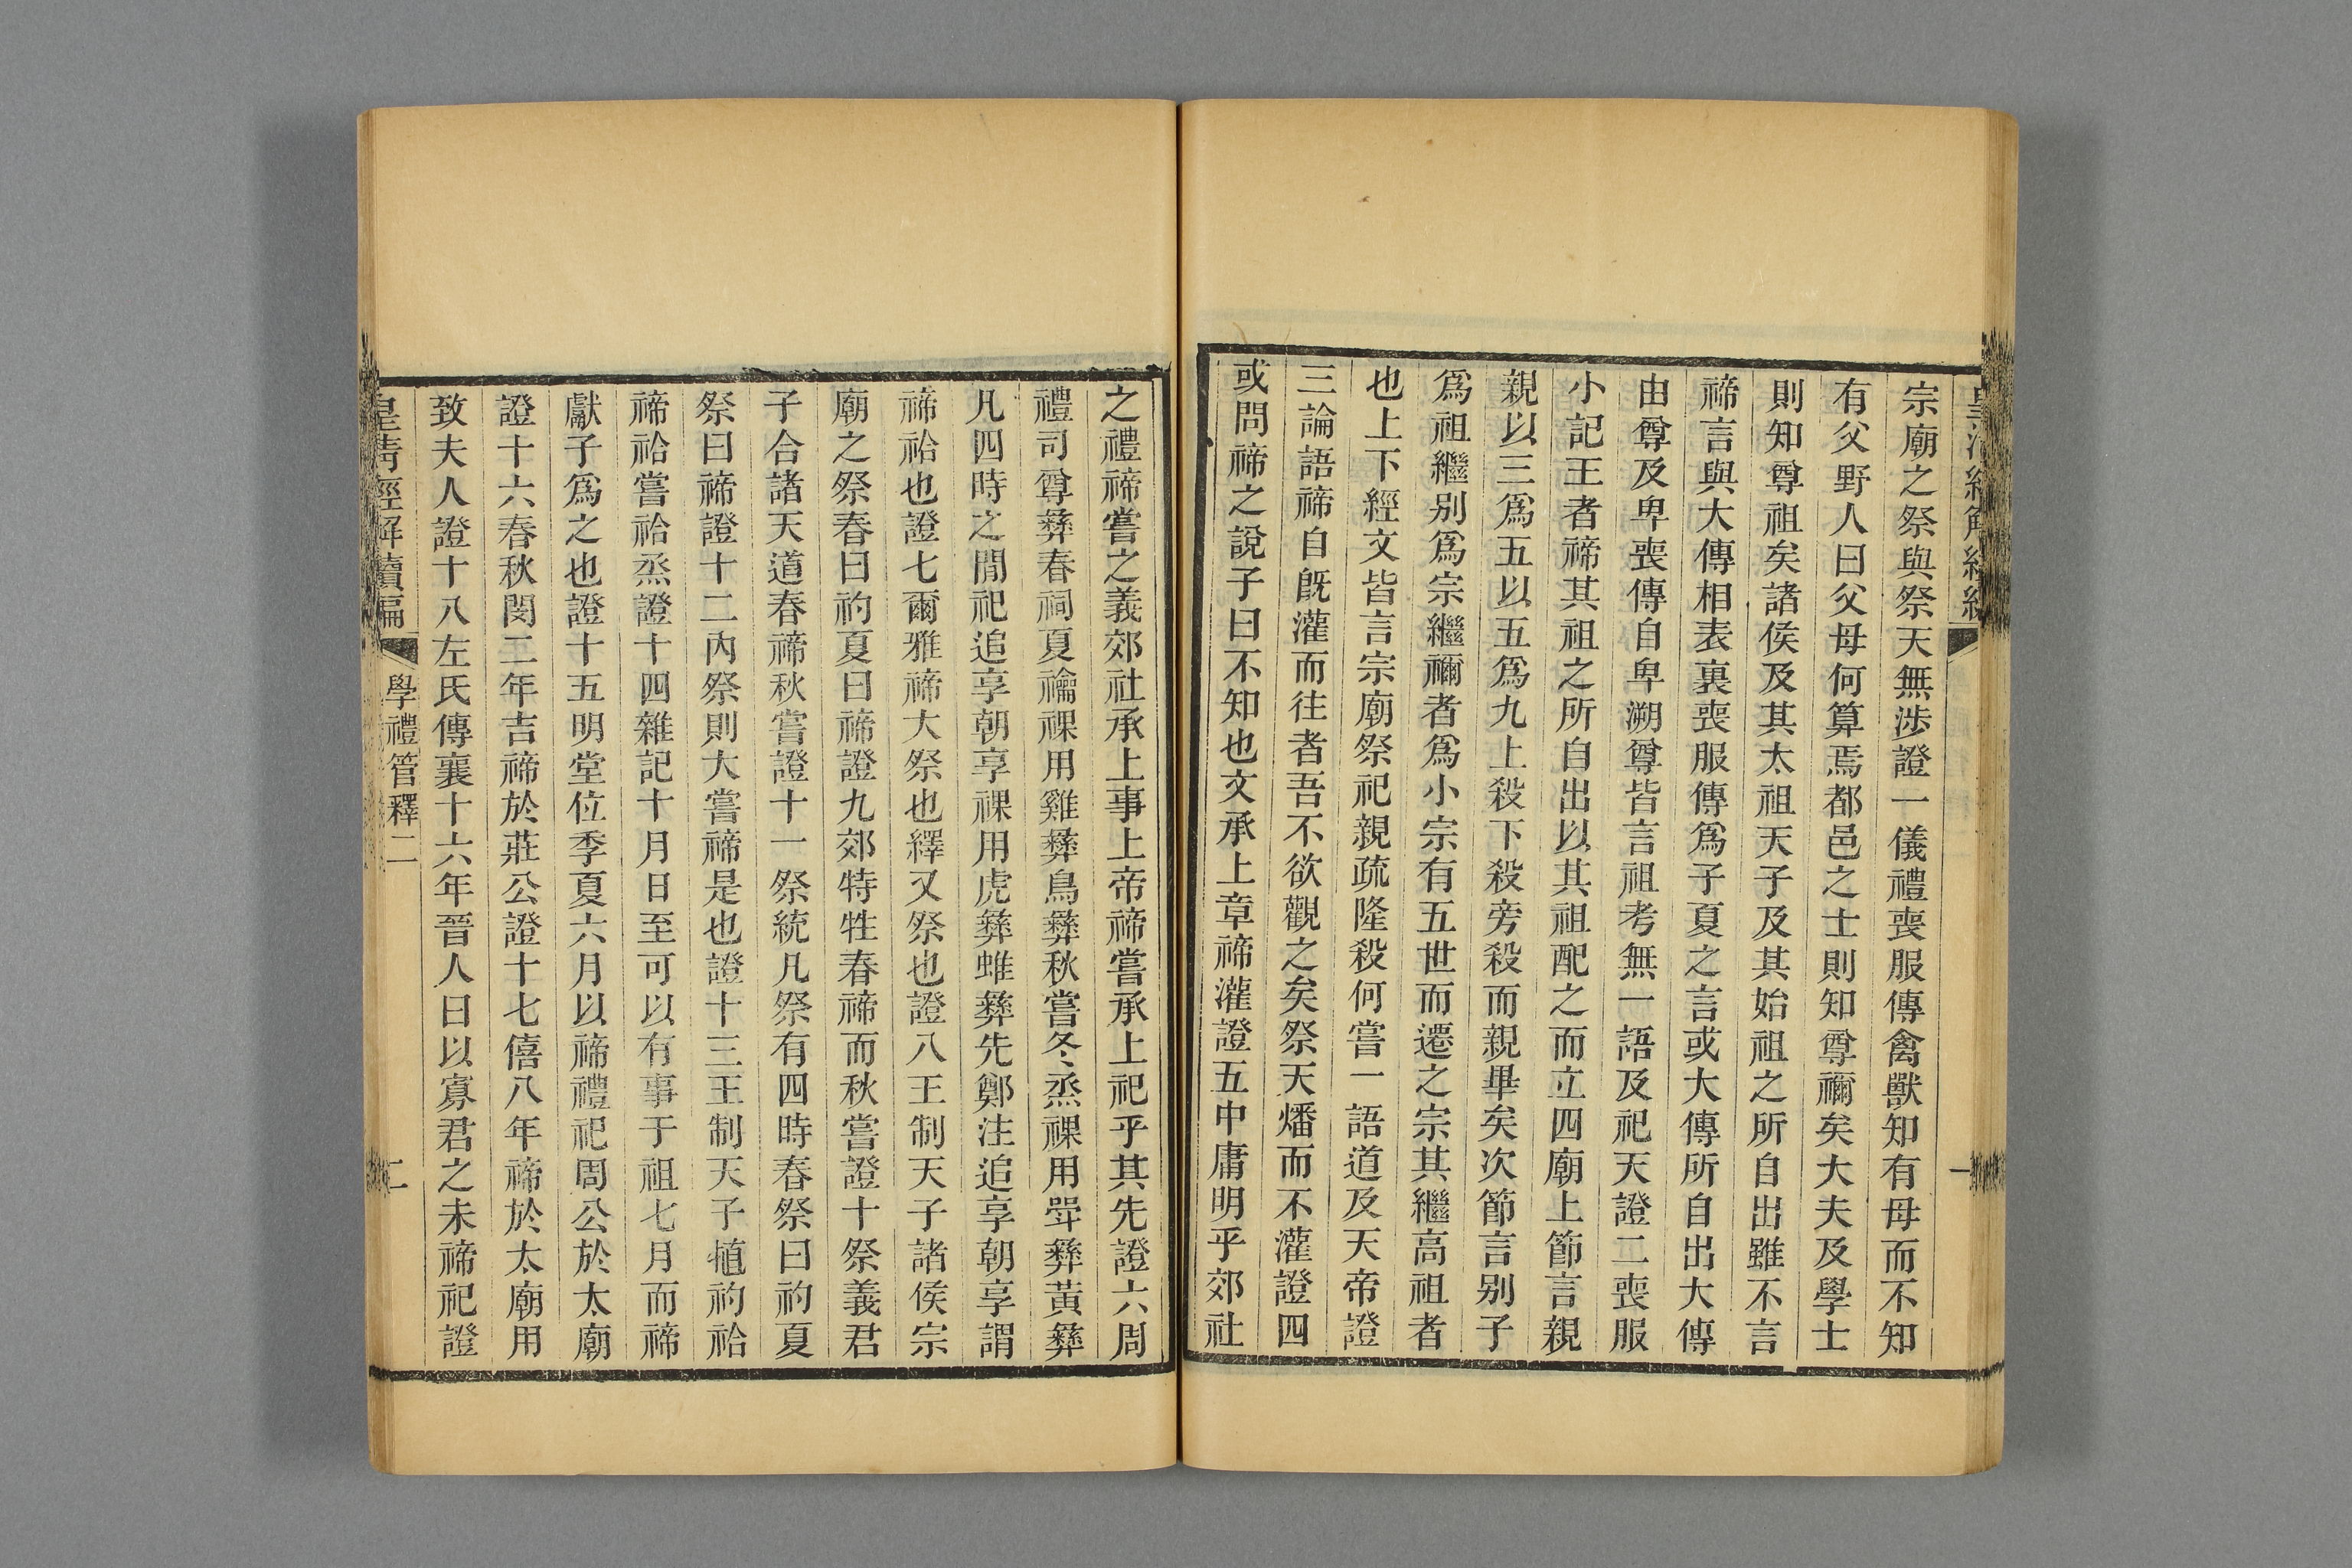 宗廟之祭與祭天無涉證一儀禮喪服傳禽獸知有母而不知
有父野人曰父母何算焉都邑之士則知尊禰矣大夫及學士
則知尊祖矣諸侯及其太祖天子及其始祖之所自出雖不言
禘言與大傳相表裏喪服傳爲子夏之言或大傳所自出大傳
由尊及卑喪傳自卑溯尊皆言祖考無一語及祀天證二喪服
小記王者禘其祖之所自出以其祖配之而立四廟上節言親
親以三爲五以五爲九上殺下殺旁殺而親畢矣次節言别子
爲祖繼别爲宗繼禰者爲小宗有五世而遷之宗其繼高祖者
也上下經文皆言宗廟祭祀親疏隆殺何嘗一語道及天帝證
三論語禘自旣灌而往者吾不欲觀之矣祭天燔而不灌證四
或問禘之說子曰不知也文承上章禘灌證五中庸明乎郊社
之禮禘嘗之義郊社承上事上帝禘嘗承上祀乎其先證六周
禮司尊彝春祠夏禴祼用雞彝鳥彝秋嘗冬烝祼用斝彝黃彝
凡四時之閒祀追享朝享祼用虎彝蜼彝先鄭注追享朝享謂
禘祫也證七爾雅禘大祭也繹又祭也證八王制天子諸侯宗
廟之祭春曰礿夏曰禘證九郊特牲春禘而秋嘗證十祭義君
子合諸天道春禘秋嘗證十一祭統凡祭有四時春祭曰礿夏
祭曰禘證十二內祭則大嘗禘是也證十三王制天子犆礿祫
禘祫嘗祫烝證十四雜記十月日至可以有事于祖七月而禘
獻子爲之也證十五明堂位季夏六月以禘禮祀周公於太廟
證十六春秋閔二年吉禘於莊公證十七僖八年禘於太廟用
致夫人證十八左氏傳襄十六年晉人曰以寡君之未禘祀證
皇清經解續編 學禮管釋二 二